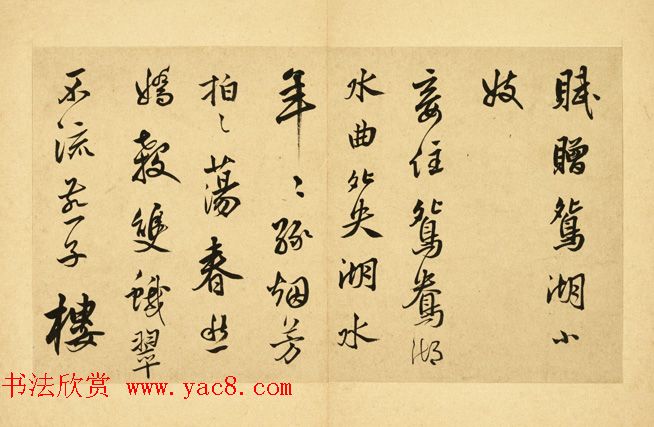 賦贈鴛湖小
妓
妾住鴛鴦湖
水曲夗央湖水
年〻綠烟芳
拍〻蕩春愁
嬌雙蛾翠
不流燕子樓
书法欣赏 www.yac8.com